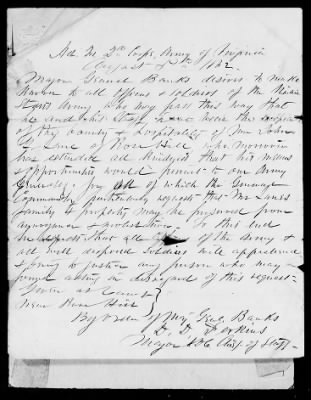 Hd. Qr. 2d Corps, Army of Virginia
August 1862.
Major General Banks desires to make
known to all officers & soldiers of the United
States Army who may pass this way that
he and his Staff have been the recipients
of the bounty & hospitality of Mr John
Lane of Rose Hill who
has extended all kindness that his means
& opportunities would permit to our Army
Generally for all of which the General
Commanding particularly requests that Mr Lane's
family & property may be preserved from
annoyance & molestation. To this end
he expects that all of the Army &
all well disposed soldiers will apprehend
& bring to justice any person who may be
found acting in disregard of this request.
Given at Camp
Near Rose Hill
By order of Maj Genl. Banks
D. D. Perkins
Major & Chief of Staff